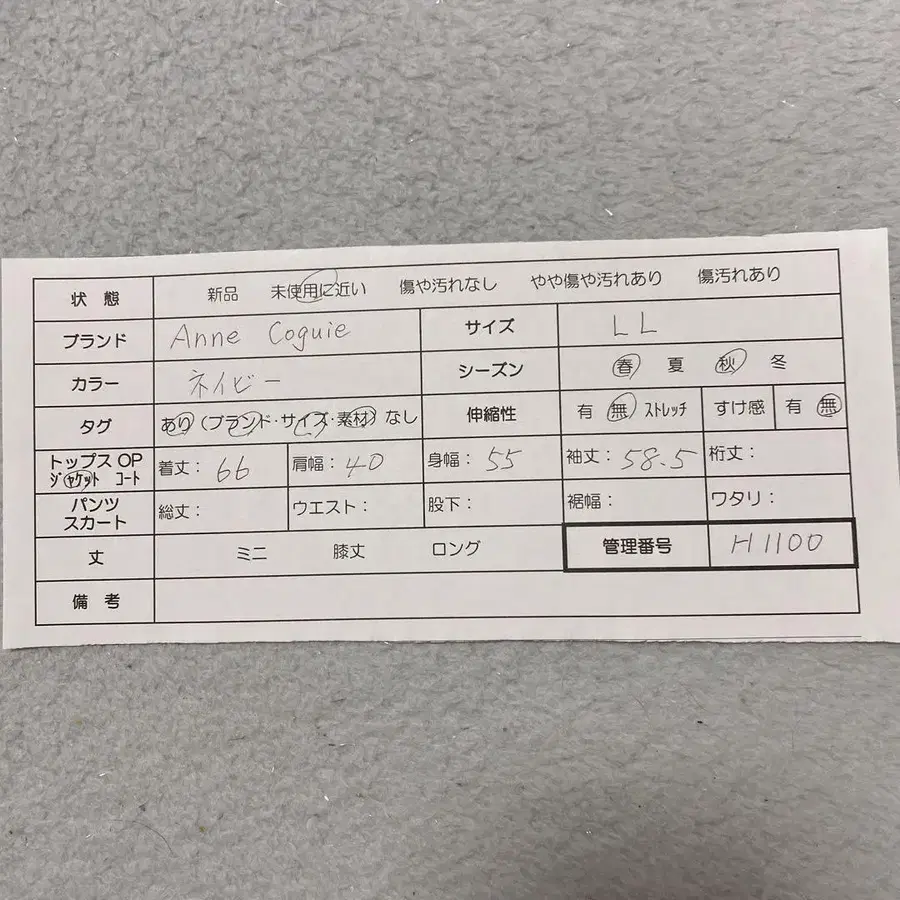 状態 新品 未使用に近い 傷や汚れなし やや傷や汚れあり 傷汚れあり
ブランド Anne Coquie サイズ LL
カラー ネイビー シーズン 春 夏 秋 冬
タグ あり(ブランド・サイズ・素材) なし 伸縮性 有 無 ストレッチ すけ感 有 無
トップス OP 着丈: 66 肩幅: 40 身幅: 55 袖丈: 58.5 裄丈:
ジャケット コート
パンツ 総丈: ウエスト: 股下: 裾幅: ワタリ:
スカート
丈 ミニ 膝丈 ロング 管理番号 H1100
備考